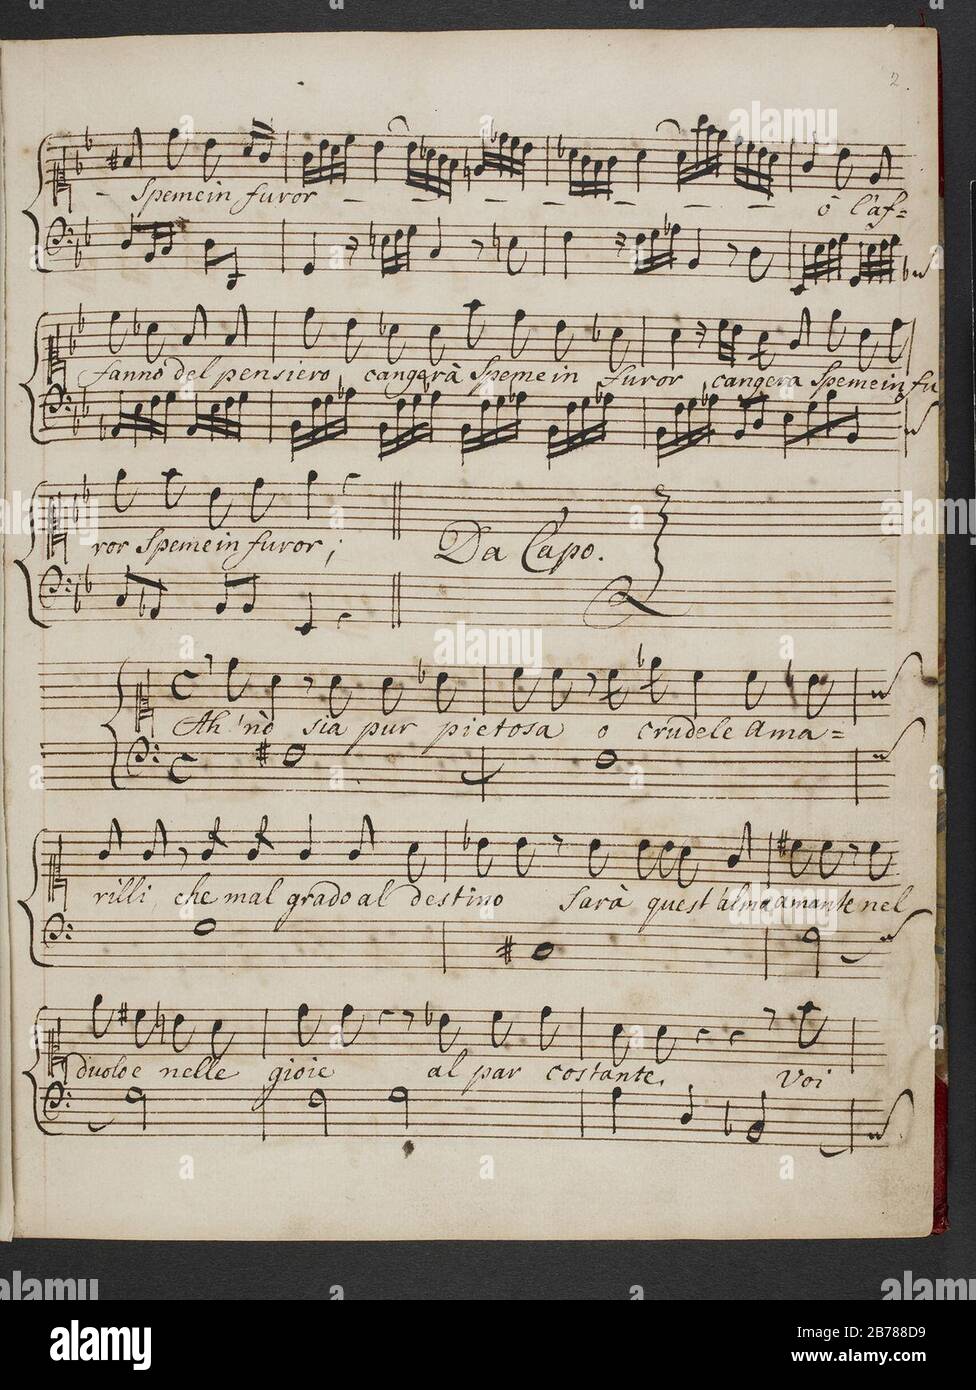 2
Speme in furor _ _ _ _ _ _ _ _ _ o l'af=
fanno del pensiero cangerà Speme in furor cangera Speme in fu
ror Speme in furor; Da Capo.
Ah nò sia pur pietosa o crudele Ama=
rilli, che mal grado al destino Sarà quest'alma amante nel
duolo e nelle gioie al par costante. Voi
alamy
Image ID: 2B788D9
www.alamy.com